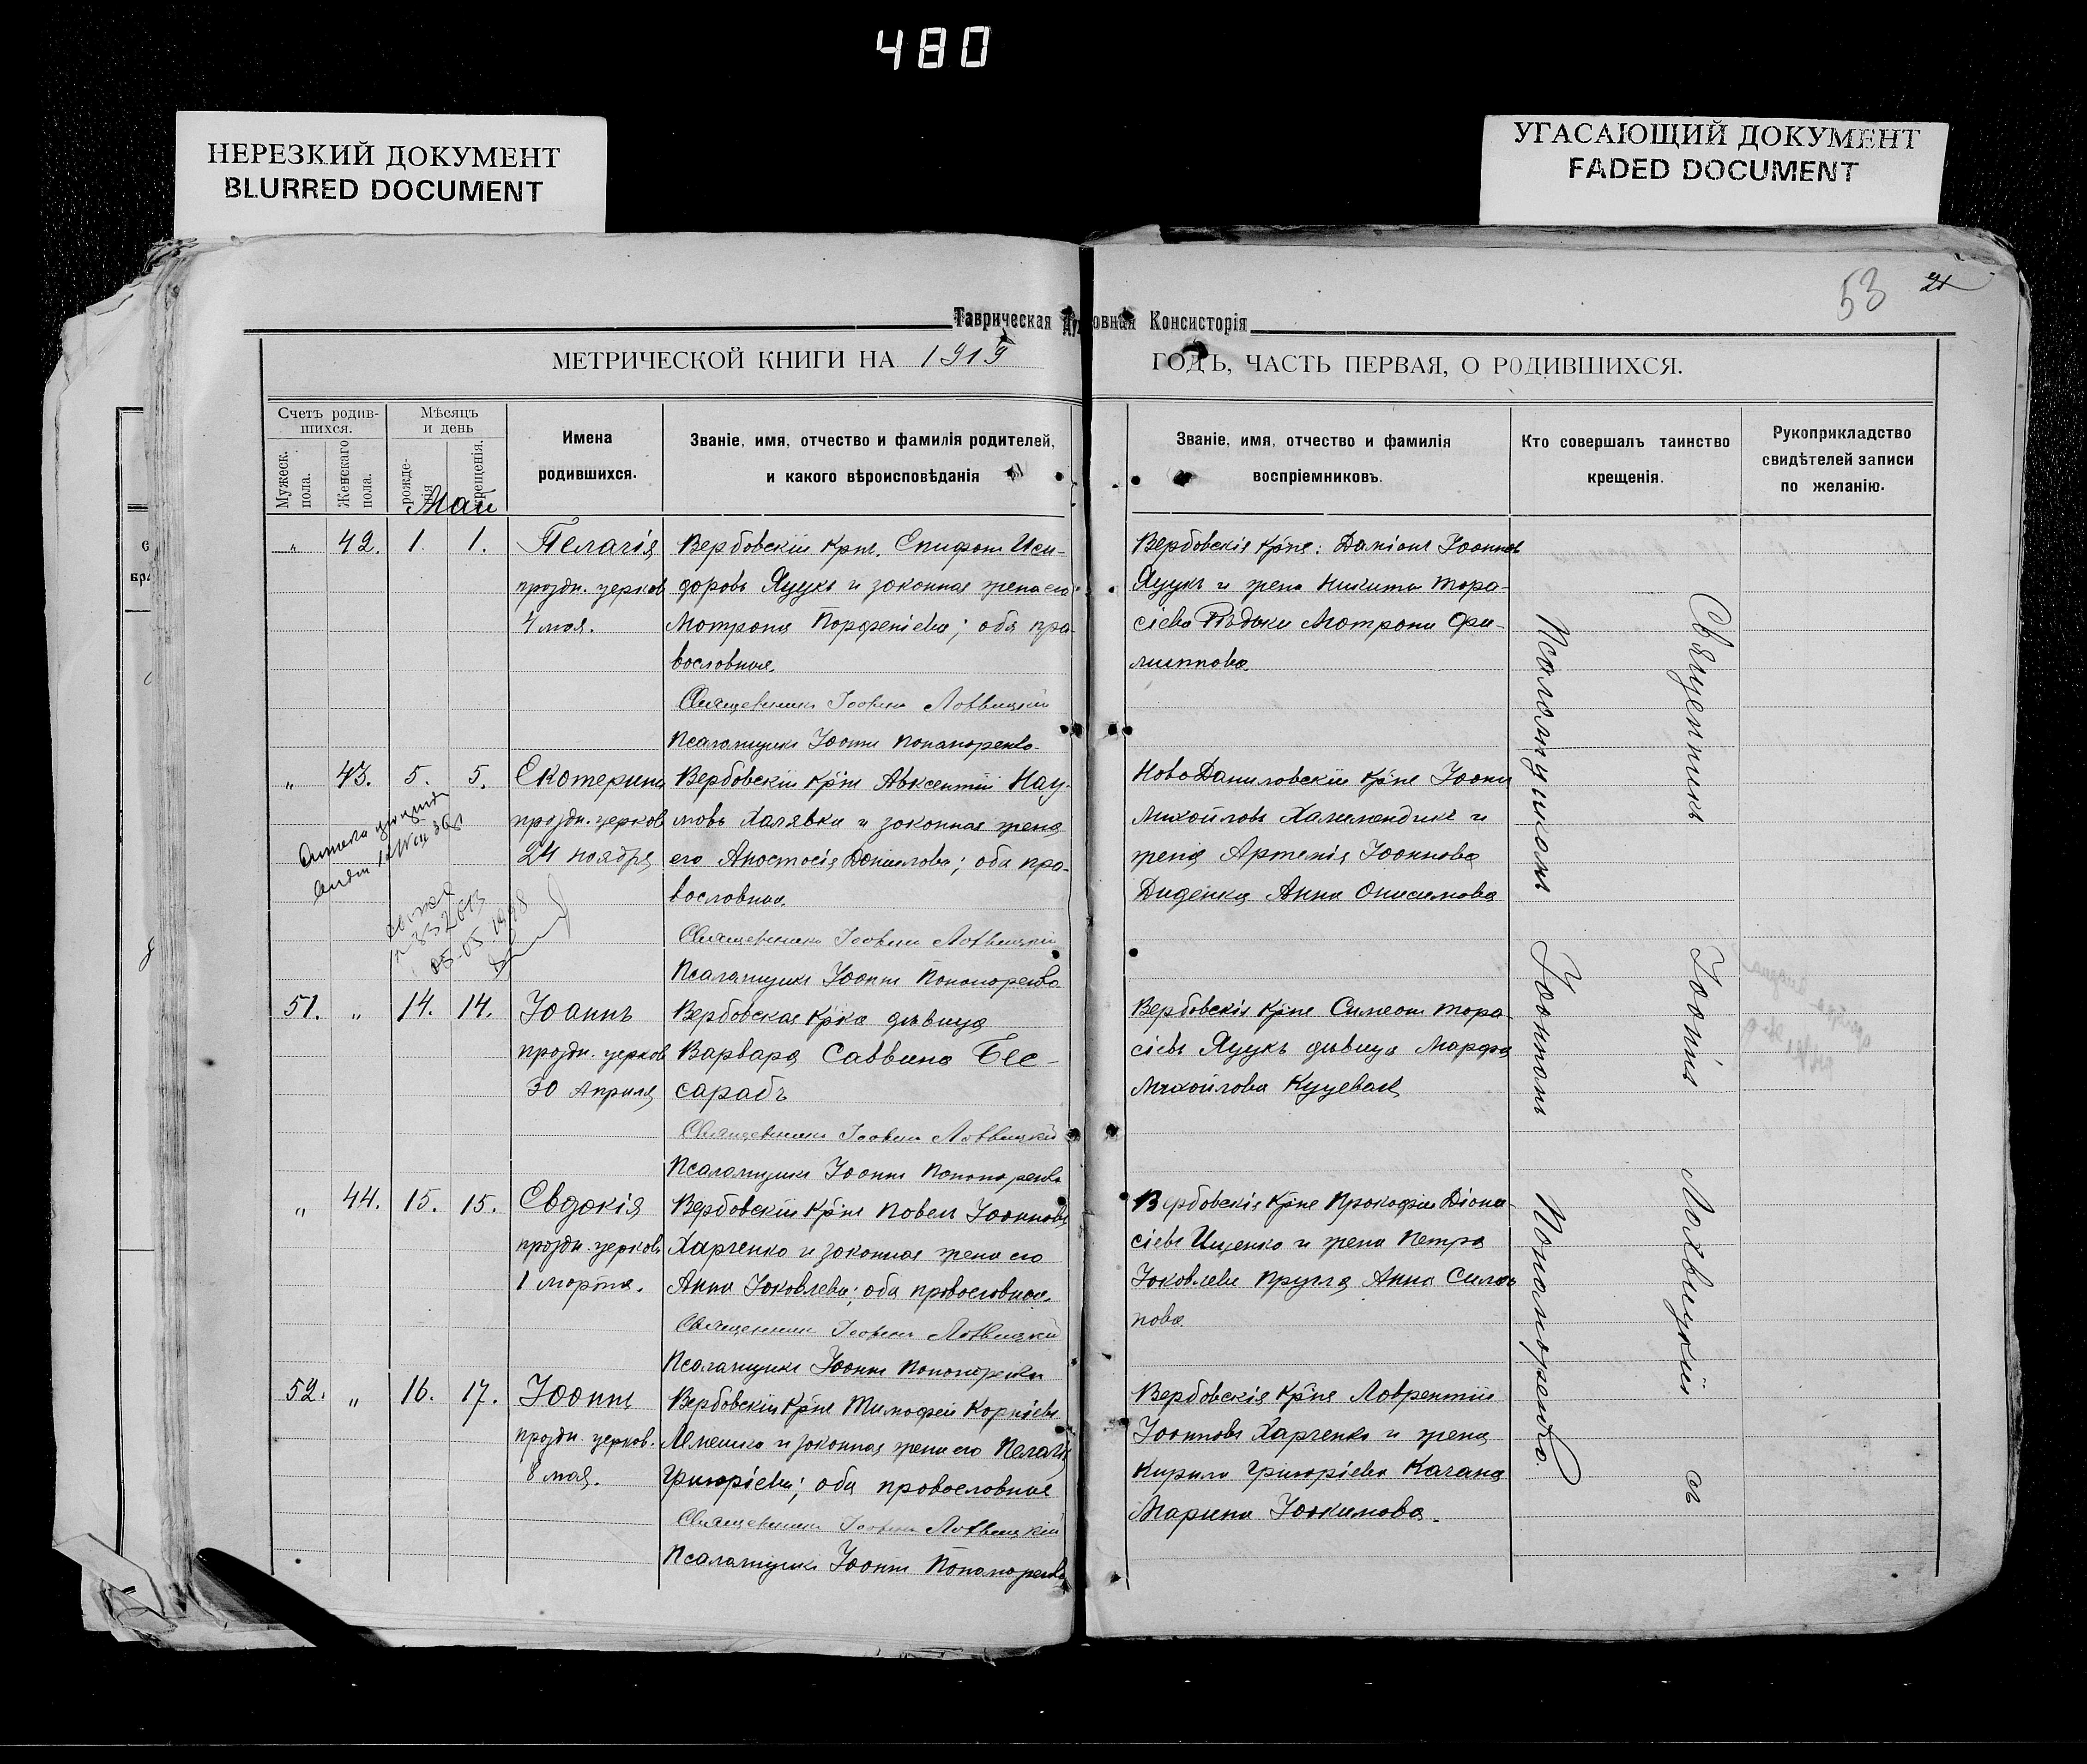 480
НЕРЕЗКИЙ ДОКУМЕНТ
BLURRED DOCUMENT
УГАСАЮЩИЙ ДОКУМЕНТ
FADED DOCUMENT
53
Таврическая Духовная Консисторія
МЕТРИЧЕСКОЙ КНИГИ НА 1919 ГОДЪ, ЧАСТЬ ПЕРВАЯ, О РОДИВШИХСЯ.
Счетъ родив-
шихся.
Мужеск. пола.
Женскаго пола.
Мѣсяцъ
и день
рожде-
нія
крещенія.
Май
Имена
родившихся.
Званіе, имя, отчество и фамилія родителей,
и какого вѣроисповѣданія
Званіе, имя, отчество и фамилія
воспріемниковъ.
Кто совершалъ таинство
крещенія.
Рукоприкладство
свидѣтелей записи
по желанію.
„ 42. 1. 1.
Пелагія
праздн. церков
4 мая.
Вербовскій Крнъ. Епифанъ Иси-
доровъ Яцукъ и законная жена его
Матрона Парфеніева; оба пра-
вославные.
Священникъ Іоаннъ Лохвицкій
Псаломщикъ Іоаннъ Пономаренко
Вербовскія Крне: Даміанъ Іоанновъ
Яцукъ и жена Никиты Тара-
сіева Рѣдьки Матрона Фи-
липпова.
„ 43. 5. 5.
Екатерина
праздн. церков
24 ноября
05.05.1998
Вербовскій Крнъ Авксентій Нау-
мовъ Халявка и законная жена
его Анастасія Данилова; оба пра-
вославные.
Священникъ Іоаннъ Лохвицкій
Псаломщикъ Іоаннъ Пономаренко
НовоДаниловскій Крне Іоаннъ
Михайловъ и
жена Артемія Іоаннова
Диденка Анна Онисимова
51. „ 14. 14.
Іоаннъ
праздн. церков
30 Апреля
Вербовская Крка дѣвица
Варвара Саввина Бес-
сарабъ
Священникъ Іоаннъ Лохвицкій
Псаломщикъ Іоаннъ Пономаренко
Вербовскія Крне Симеонъ Тара-
сіевъ Яцукъ дѣвица Марфа
Михайлова Куцевая
„ 44. 15. 15.
Евдокія
праздн. церковь
1 марта.
Вербовскій Крнъ Павелъ Іоанновъ
Харченко и законная жена его
Анна Іаковлева; оба православные.
Священникъ Іоаннъ Лохвицкій
Псаломщикъ Іоаннъ Пономаренко
Вербовскія Крне Прокофій Діона-
сіевъ Ищенко и жена Петра
Іаковлева Анна Силоа-
нова.
52. „ 16. 17.
Іоаннъ
праздн. церков.
8 мая.
Вербовскій Крне Тимофей Корніевъ
Лемешко и законная жена его Пелагія
Григоріева; оба православные
Священникъ Іоаннъ Лохвицкій
Псаломщикъ Іоаннъ Пономаренко
Вербовскія Крня Лаврентій
Іоанновъ Харченко и жена
Кирила Григоріева Качана
Марина Іоакимова.
Священникъ Іоаннъ Лохвицкій съ
Псаломщикомъ Іоанномъ Пономаренко.